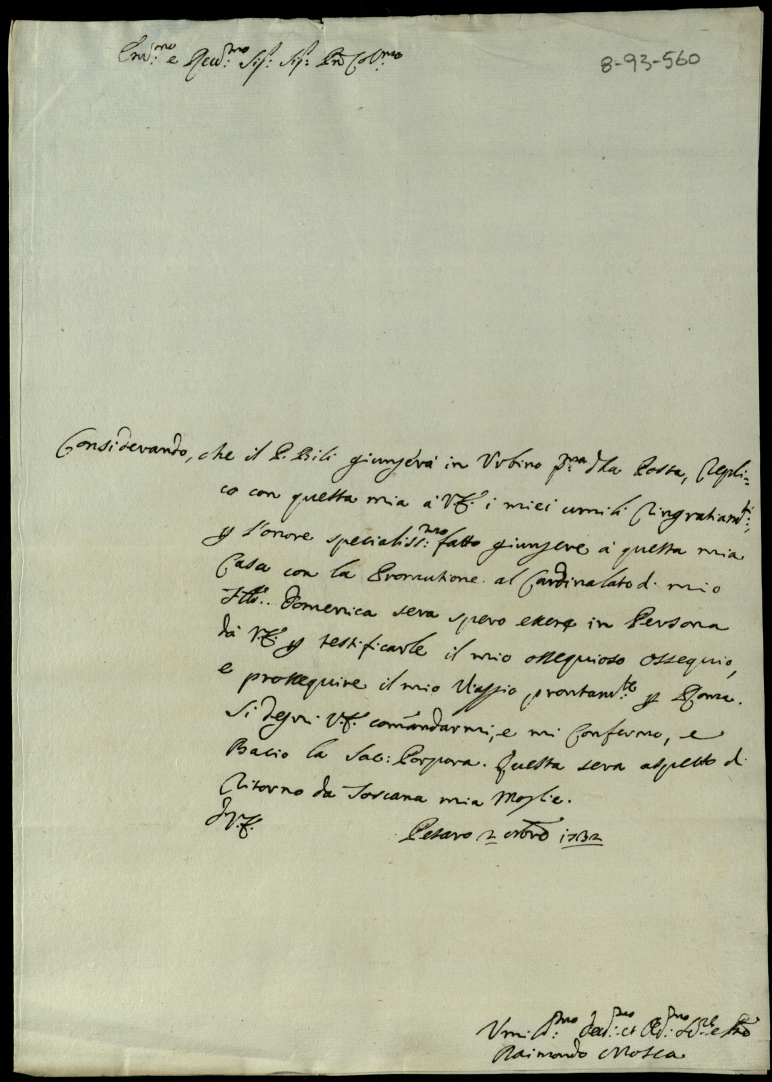 Em.mo e Rev.mo Sig.r Sig.r P.rõn Col.mo
8-93-560
Considerando, che il P. Bili giungerà in Urbino p.ma dlla Posta, repli=
co con questa mia à V.E. i miei umili ringratiam.ti,
p l'onore specialiss.mo fatto giungere à questa mia
Casa con la Promutione al Cardinalato di mio
Fllo. Domenica sera spero essere in Persona
dà V.E. p testificarle il mio ossequioso ossequio,
e prosseguire il mio viaggio prontam.te p Roma.
Si degni V.E. comandarmi, e mi confermo, e
Bacio la Sac: Porpora. Questa sera aspetto di
ritorno da Toscana mia Moglie.
di V.E.
Pesaro 2 8bre 1732
Umil.mo Dev.mo et Ob.mo Se.re
Raimondo Mosca